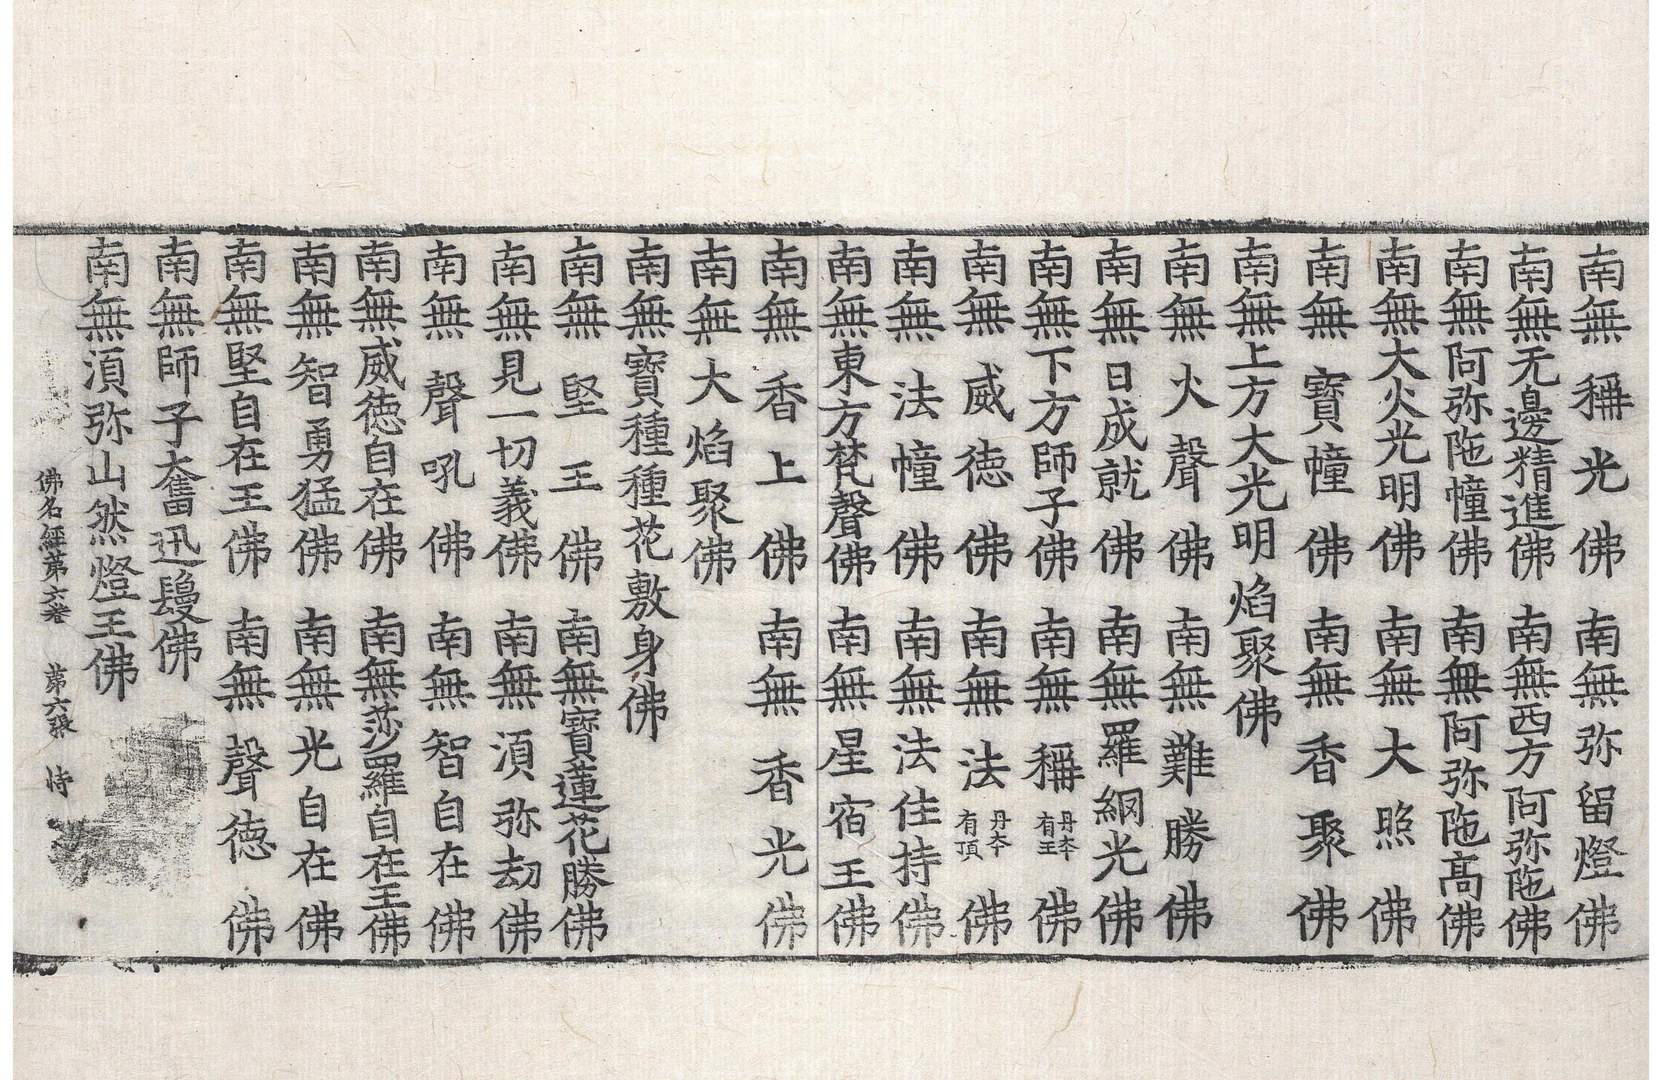 南無稱光佛　南無弥留燈佛
南無无邊精進佛　南無西方阿弥陁佛
南無阿弥陁幢佛　南無阿弥陁高佛
南無大火光明佛　南無大照佛
南無寶幢佛　南無香聚佛
南無上方大光明焰聚佛
南無火聲佛　南無難勝佛
南無日成就佛　南無羅網光佛
南無下方師子佛　南無稱丹本有王佛
南無威徳佛　南無法丹本有頂佛
南無法幢佛　南無法住持佛
南無東方梵聲佛　南無星宿王佛
南無香上佛　南無香光佛
南無大焰聚佛
南無寶種種花敷身佛
南無堅王佛　南無寶蓮花勝佛
南無見一切義佛　南無湏弥劫佛
南無聲吼佛　南無智自在佛
南無威徳自在佛　南無莎羅自在王佛
南無智勇猛佛　南無光自在佛
南無堅自在王佛　南無聲徳佛
南無師子奮迅鬘佛
南無湏弥山然燈王佛
佛名經第六卷　第六張　恃